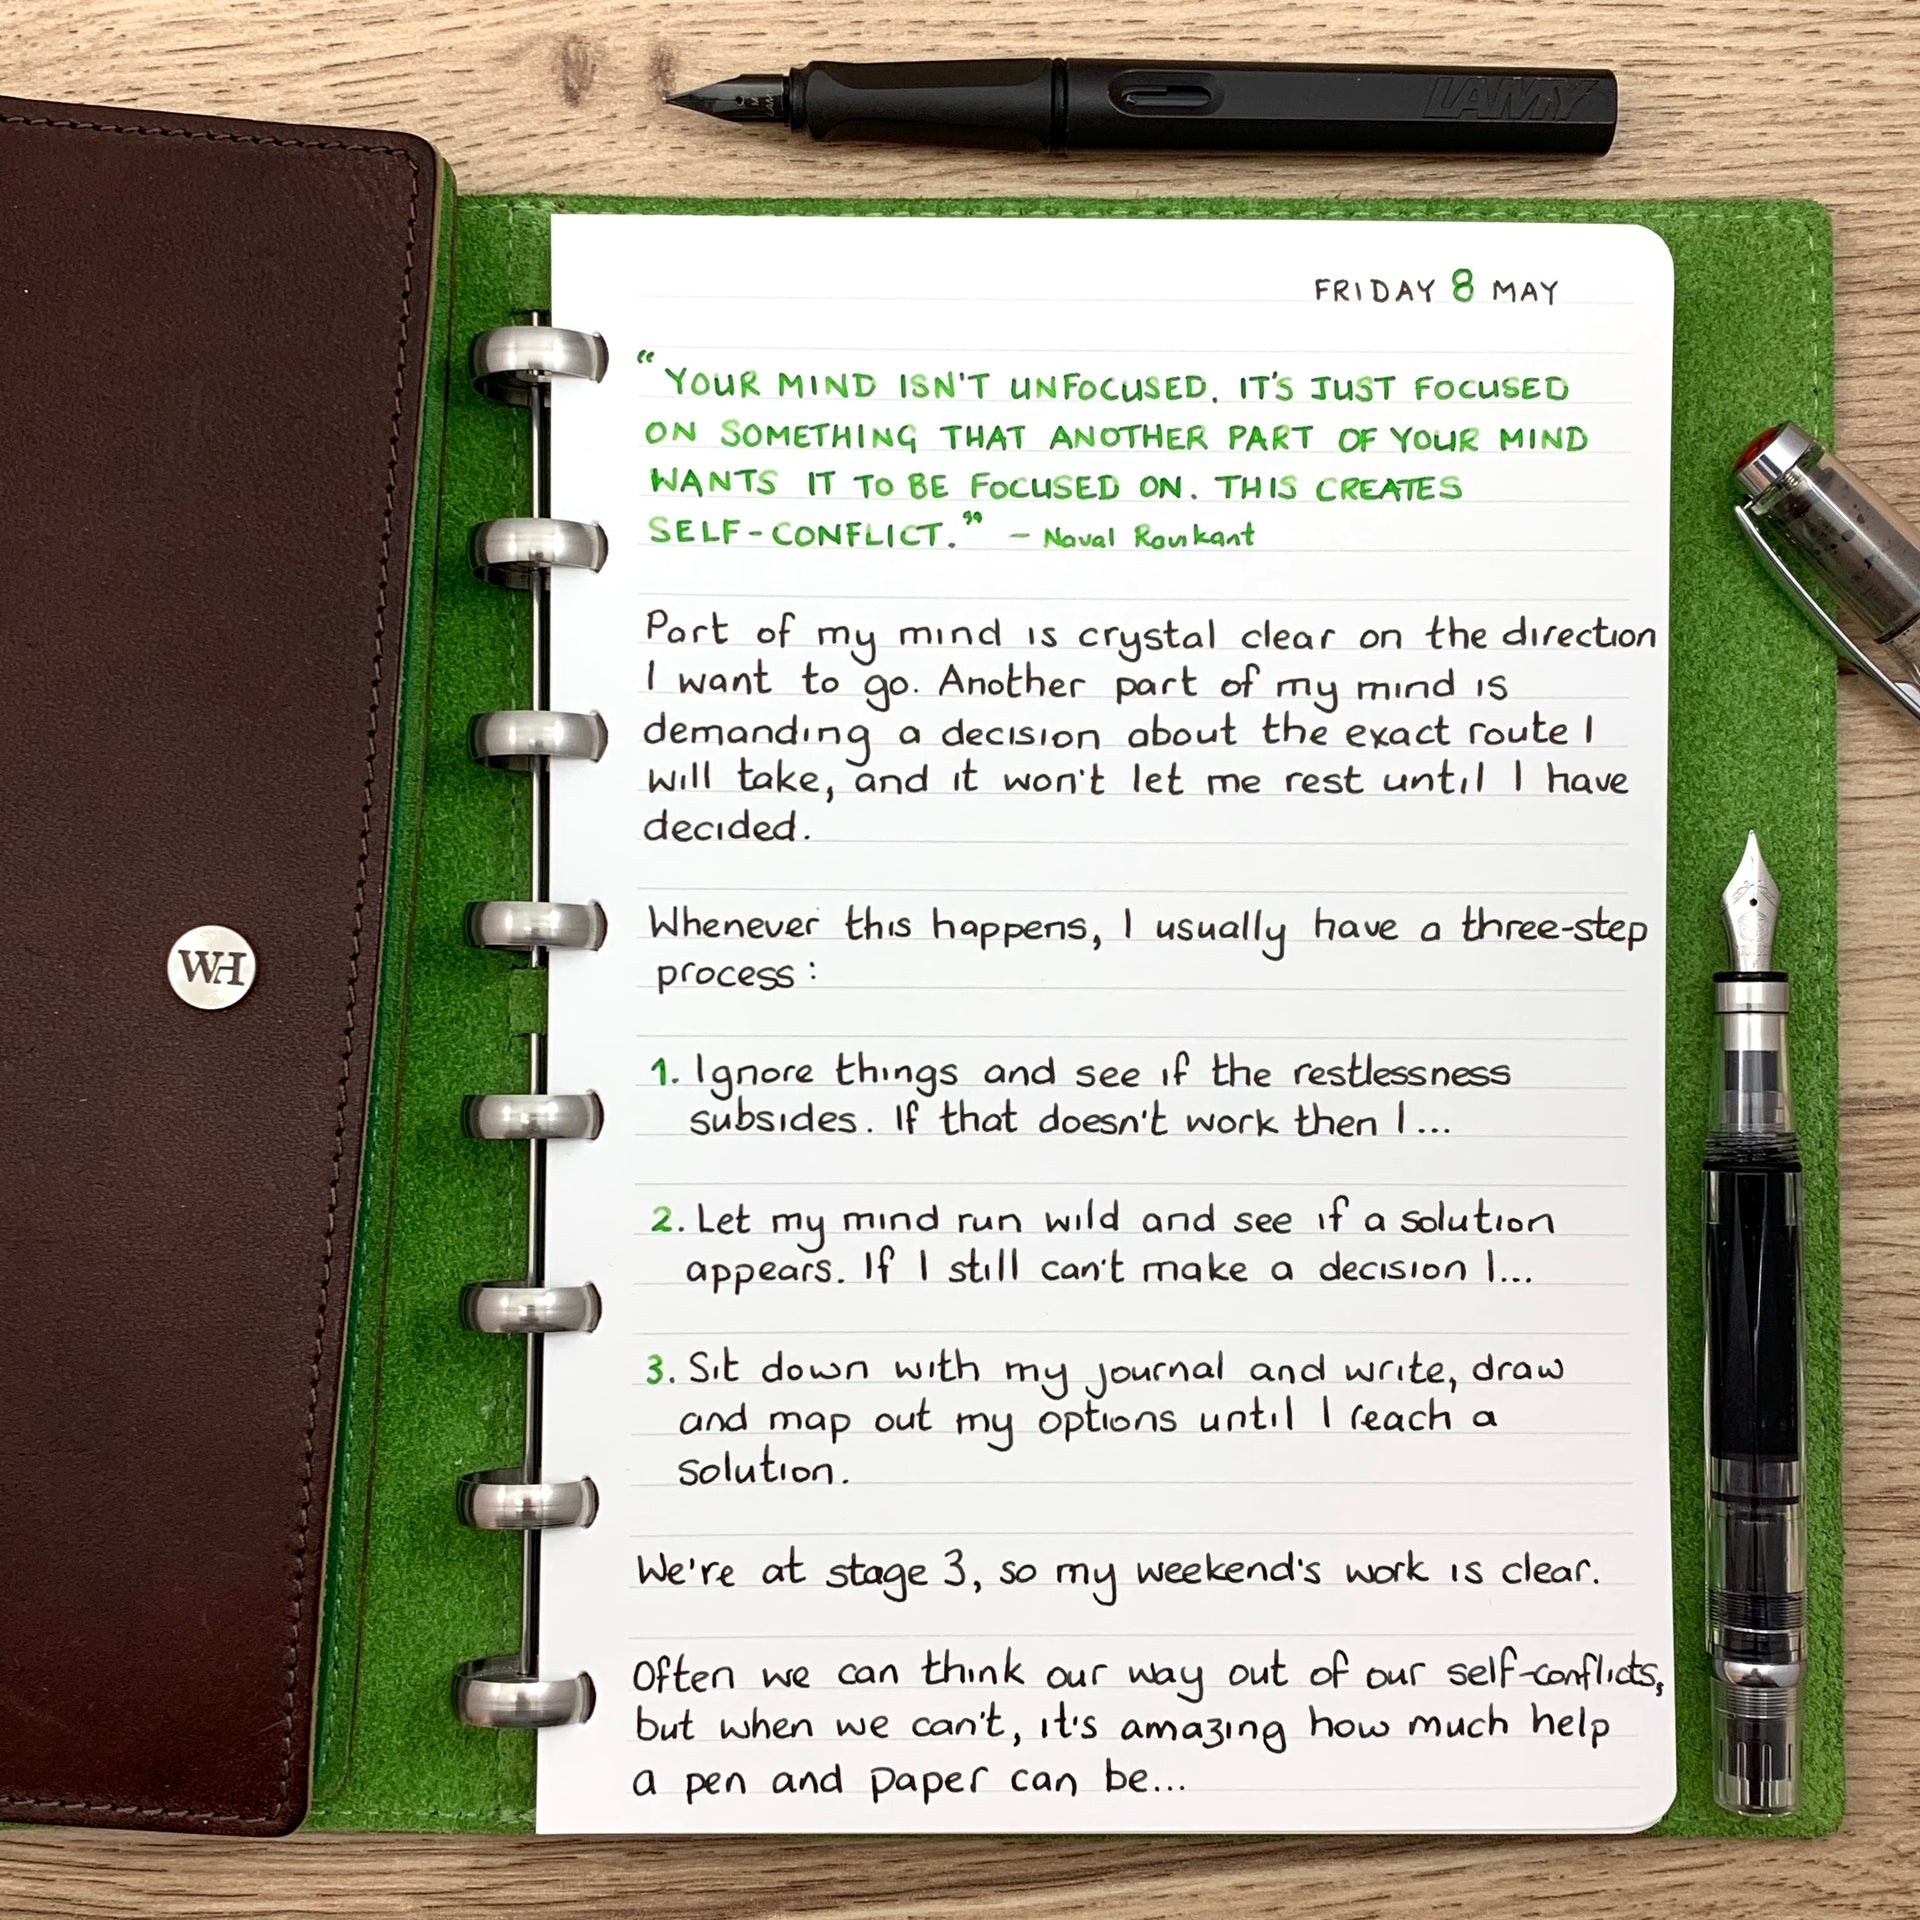 LAMY
WH
FRIDAY 8 MAY
“YOUR MIND ISN'T UNFOCUSED. IT'S JUST FOCUSED
ON SOMETHING THAT ANOTHER PART OF YOUR MIND
WANTS IT TO BE FOCUSED ON. THIS CREATES
SELF-CONFLICT.” – Naval Ravikant
Part of my mind is crystal clear on the direction
I want to go. Another part of my mind is
demanding a decision about the exact route I
will take, and it won't let me rest until I have
decided.
Whenever this happens, I usually have a three-step
process:
1. Ignore things and see if the restlessness
subsides. If that doesn't work then I...
2. Let my mind run wild and see if a solution
appears. If I still can't make a decision I...
3. Sit down with my journal and write, draw
and map out my options until I reach a
solution.
We're at stage 3, so my weekend's work is clear.
Often we can think our way out of our self-conflicts,
but when we can't, it's amazing how much help
a pen and paper can be...